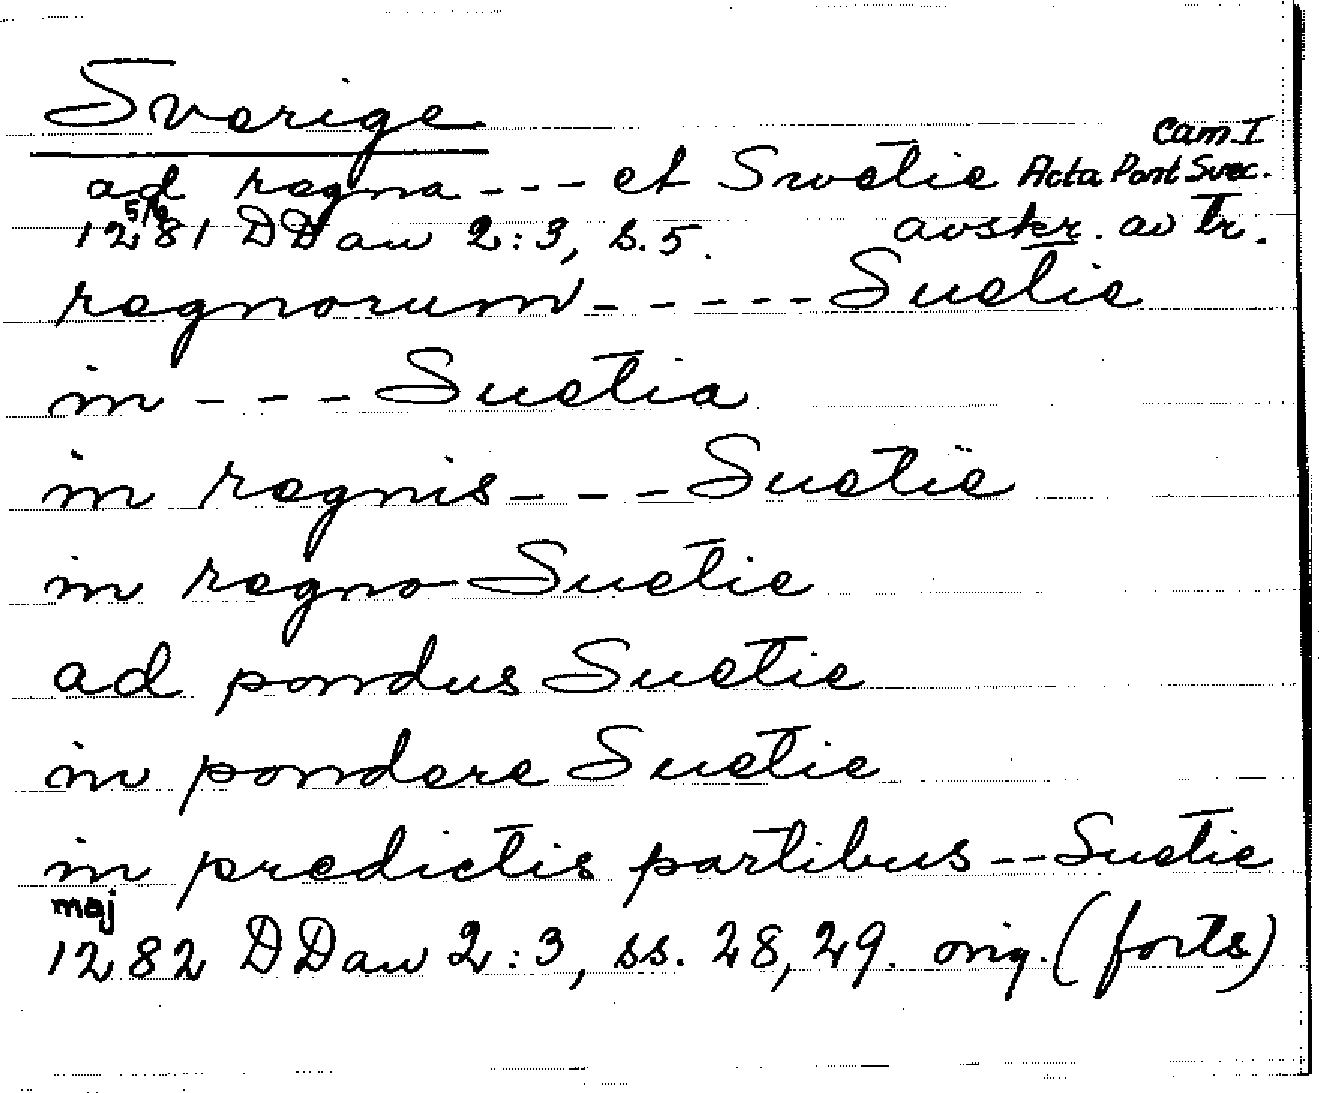 Sverige
Cam. I
ad regna --- et Swetie Acta Pont Svec.
5/6
1281 DDan 2:3, s. 5. avskr. av tr.
regnorum ----- Suetie
in --- Suetia
in regnis --- Suetie
in regno Suetie
ad pondus Suetie
in pondere Suetie
in predictis partibus -- Suetie
maj
1282 DDan 2:3, ss. 28, 29. orig. (forts)